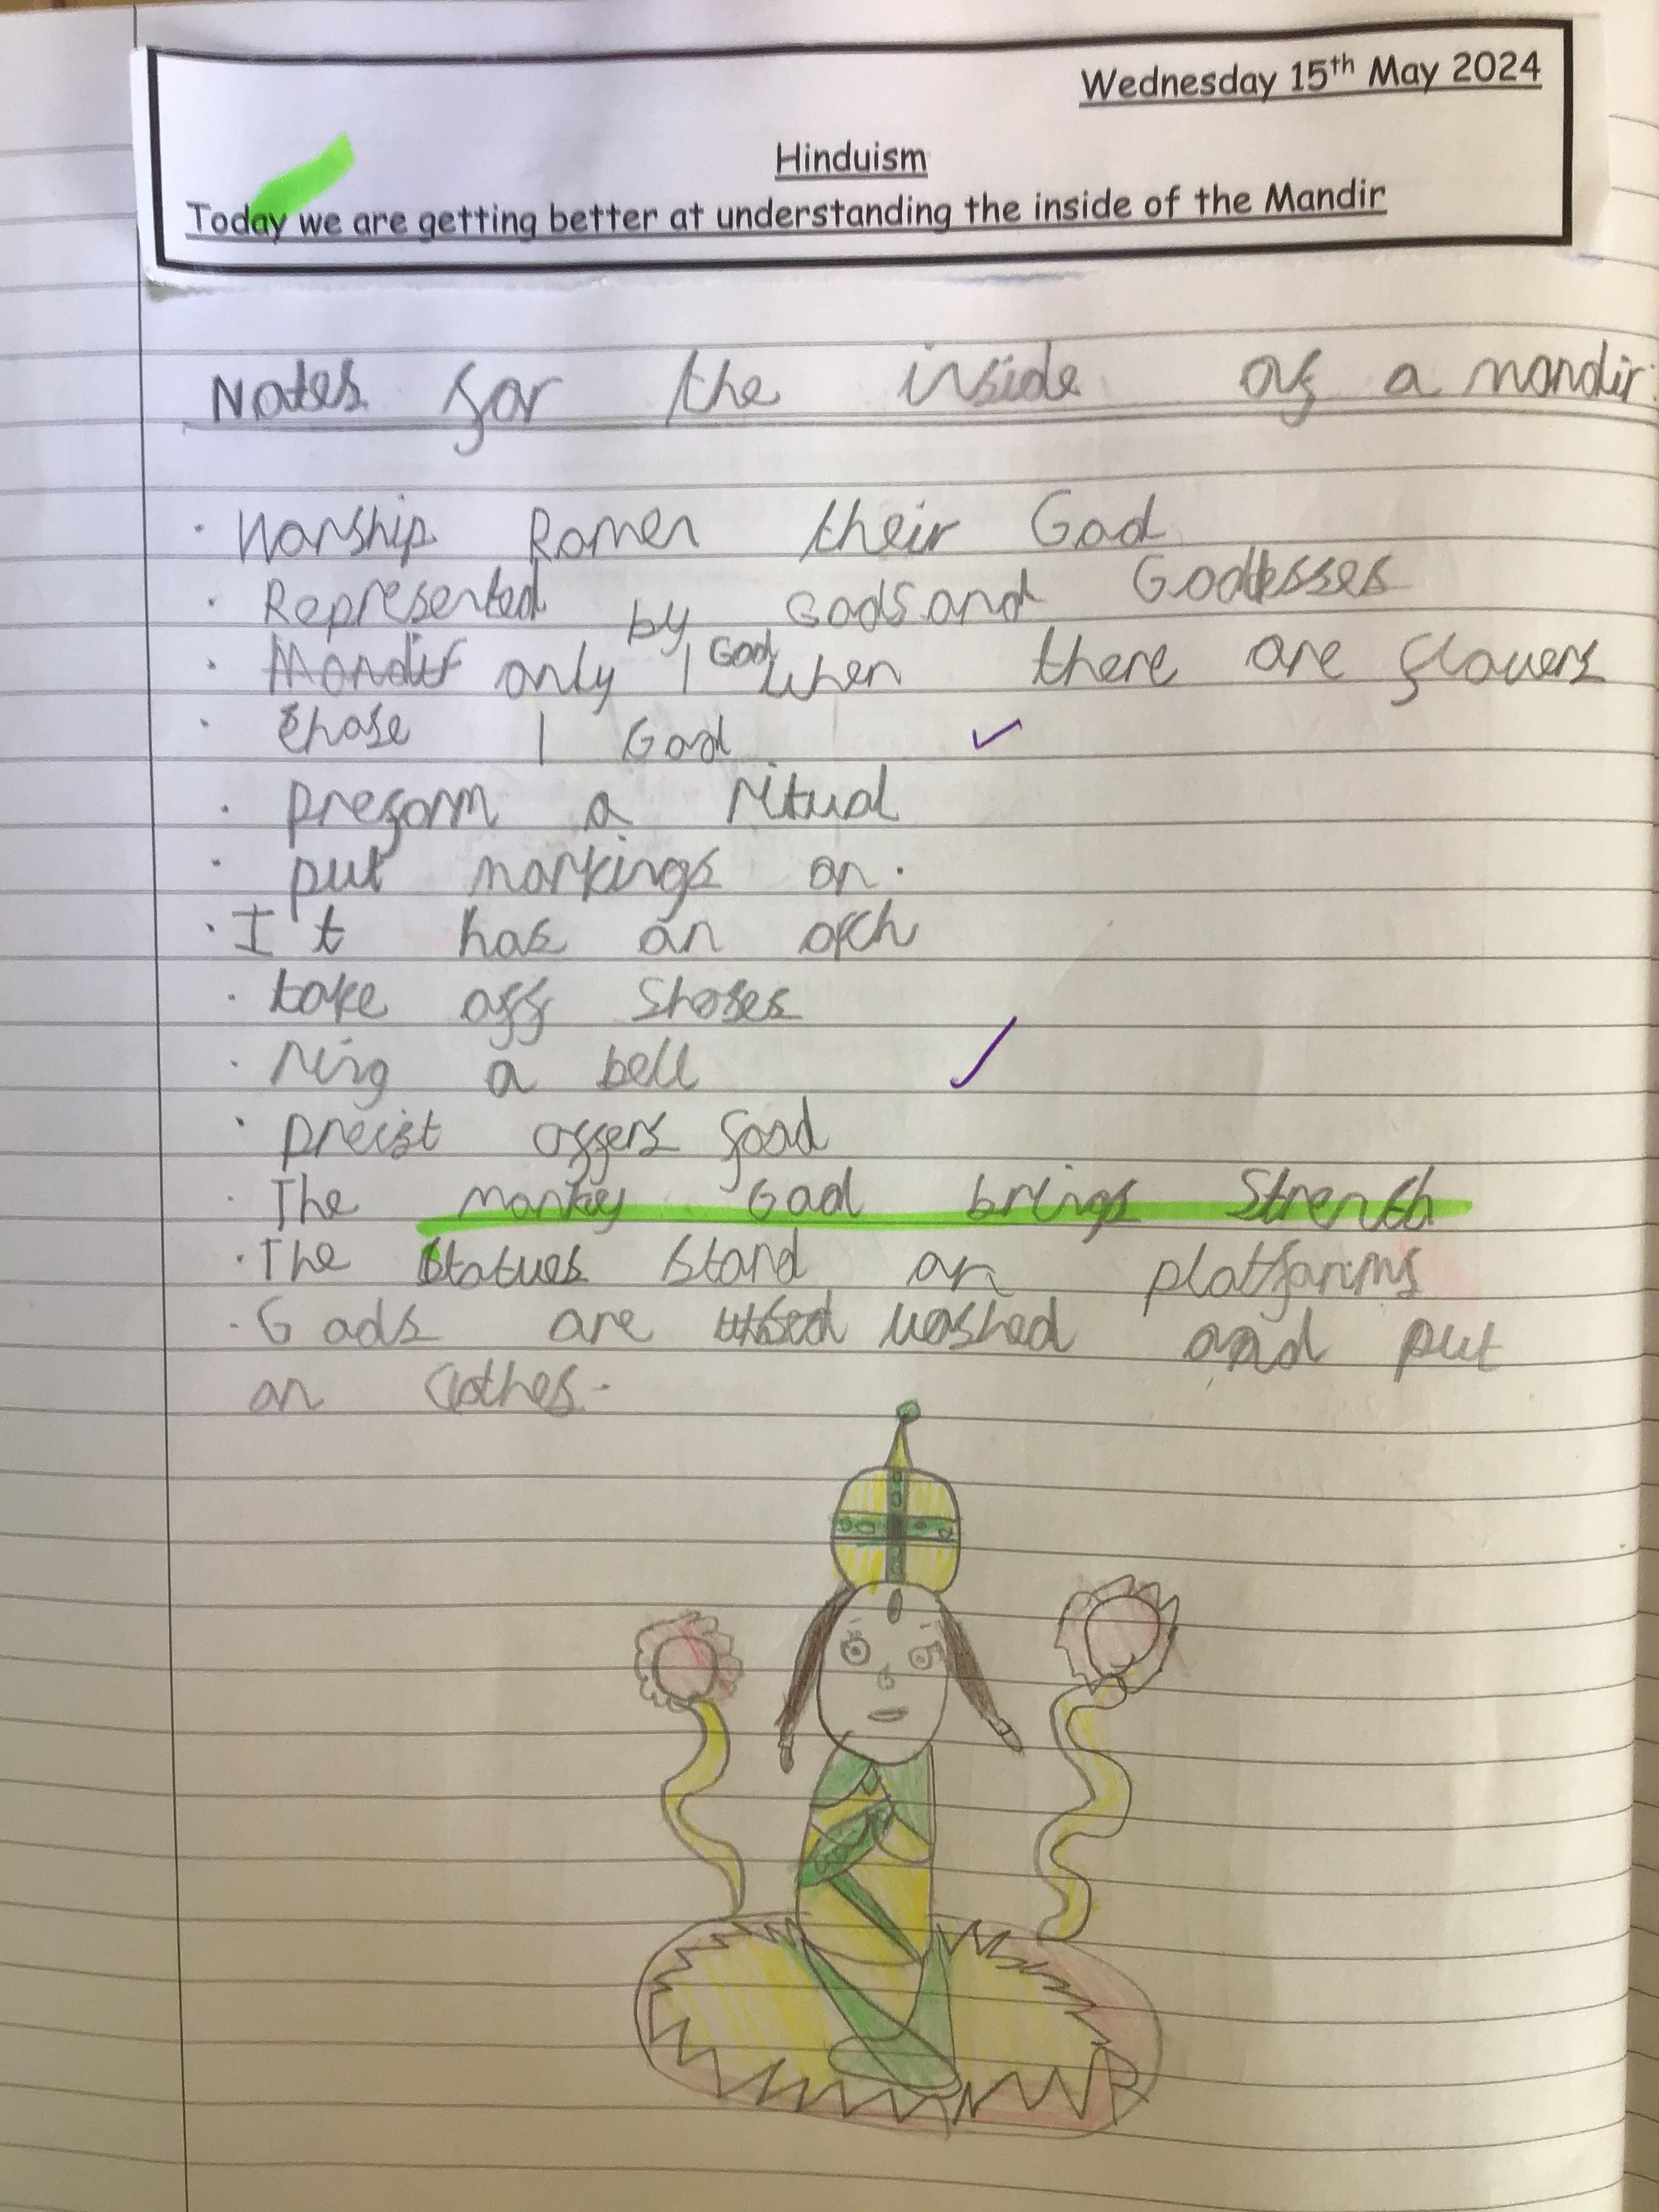 Wednesday 15th May 2024
Hinduism
Today we are getting better at understanding the inside of the Mandir
Notes for the inside of a mandir:
· Worship Ramen their God
· Represented by Gods and Goddesses
· Mandir only 1 God when there are flowers
· Chose 1 God
· preform a ritual
· put markings on.
· I't has an arch
· take off shoses
· ring a bell
· preist offers food
· The monkey God brings Strength
· The Statues stand on platforms
· Gods are washed and put
on clothes.